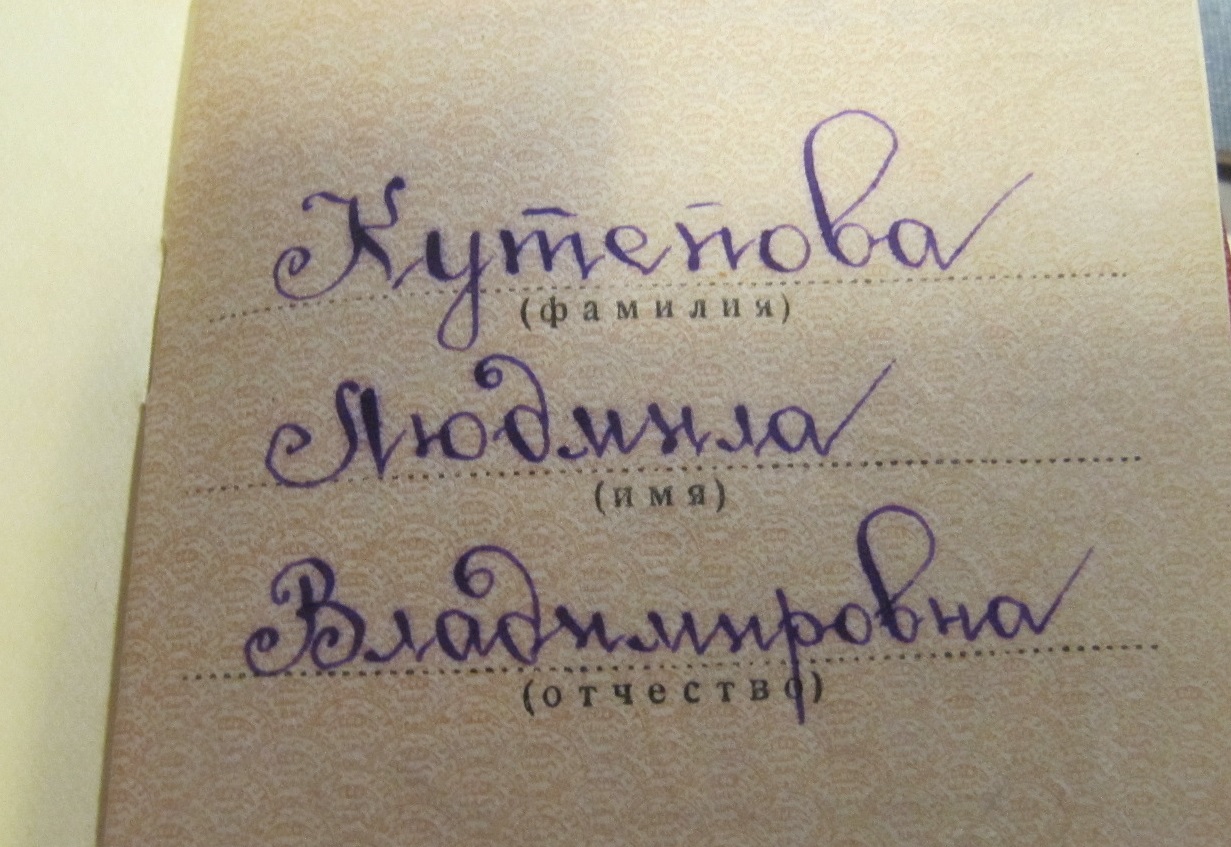 Кутепова
(фамилия)
Людмила
(имя)
Владимировна
(отчество)